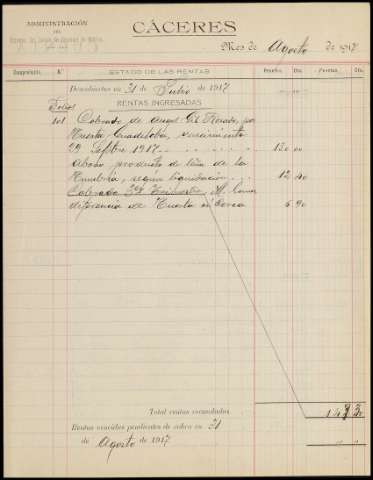 ADMINISTRACIÓN
DEL
CÁCERES
Mes de Agosto de 1917
Comprobante. N.º ESTADO DE LAS RENTAS Pesetas. Cts. Pesetas. Cts.
Descubiertos en 31 de Julio de 1917
RENTAS INGRESADAS
Folios
101 Cobrado de Angel Gil Rosado, por
Huerta Guadiloba, vencimiento
29 Setbre 1917 130.00
Abono producto de leña de la
según liquidación 12.40
Cobrado M.
diferencia de Huerta en 6 90
Total rentas recaudadas 30
Rentas vencidas pendientes de cobro en 31
de Agosto de 1917 " "